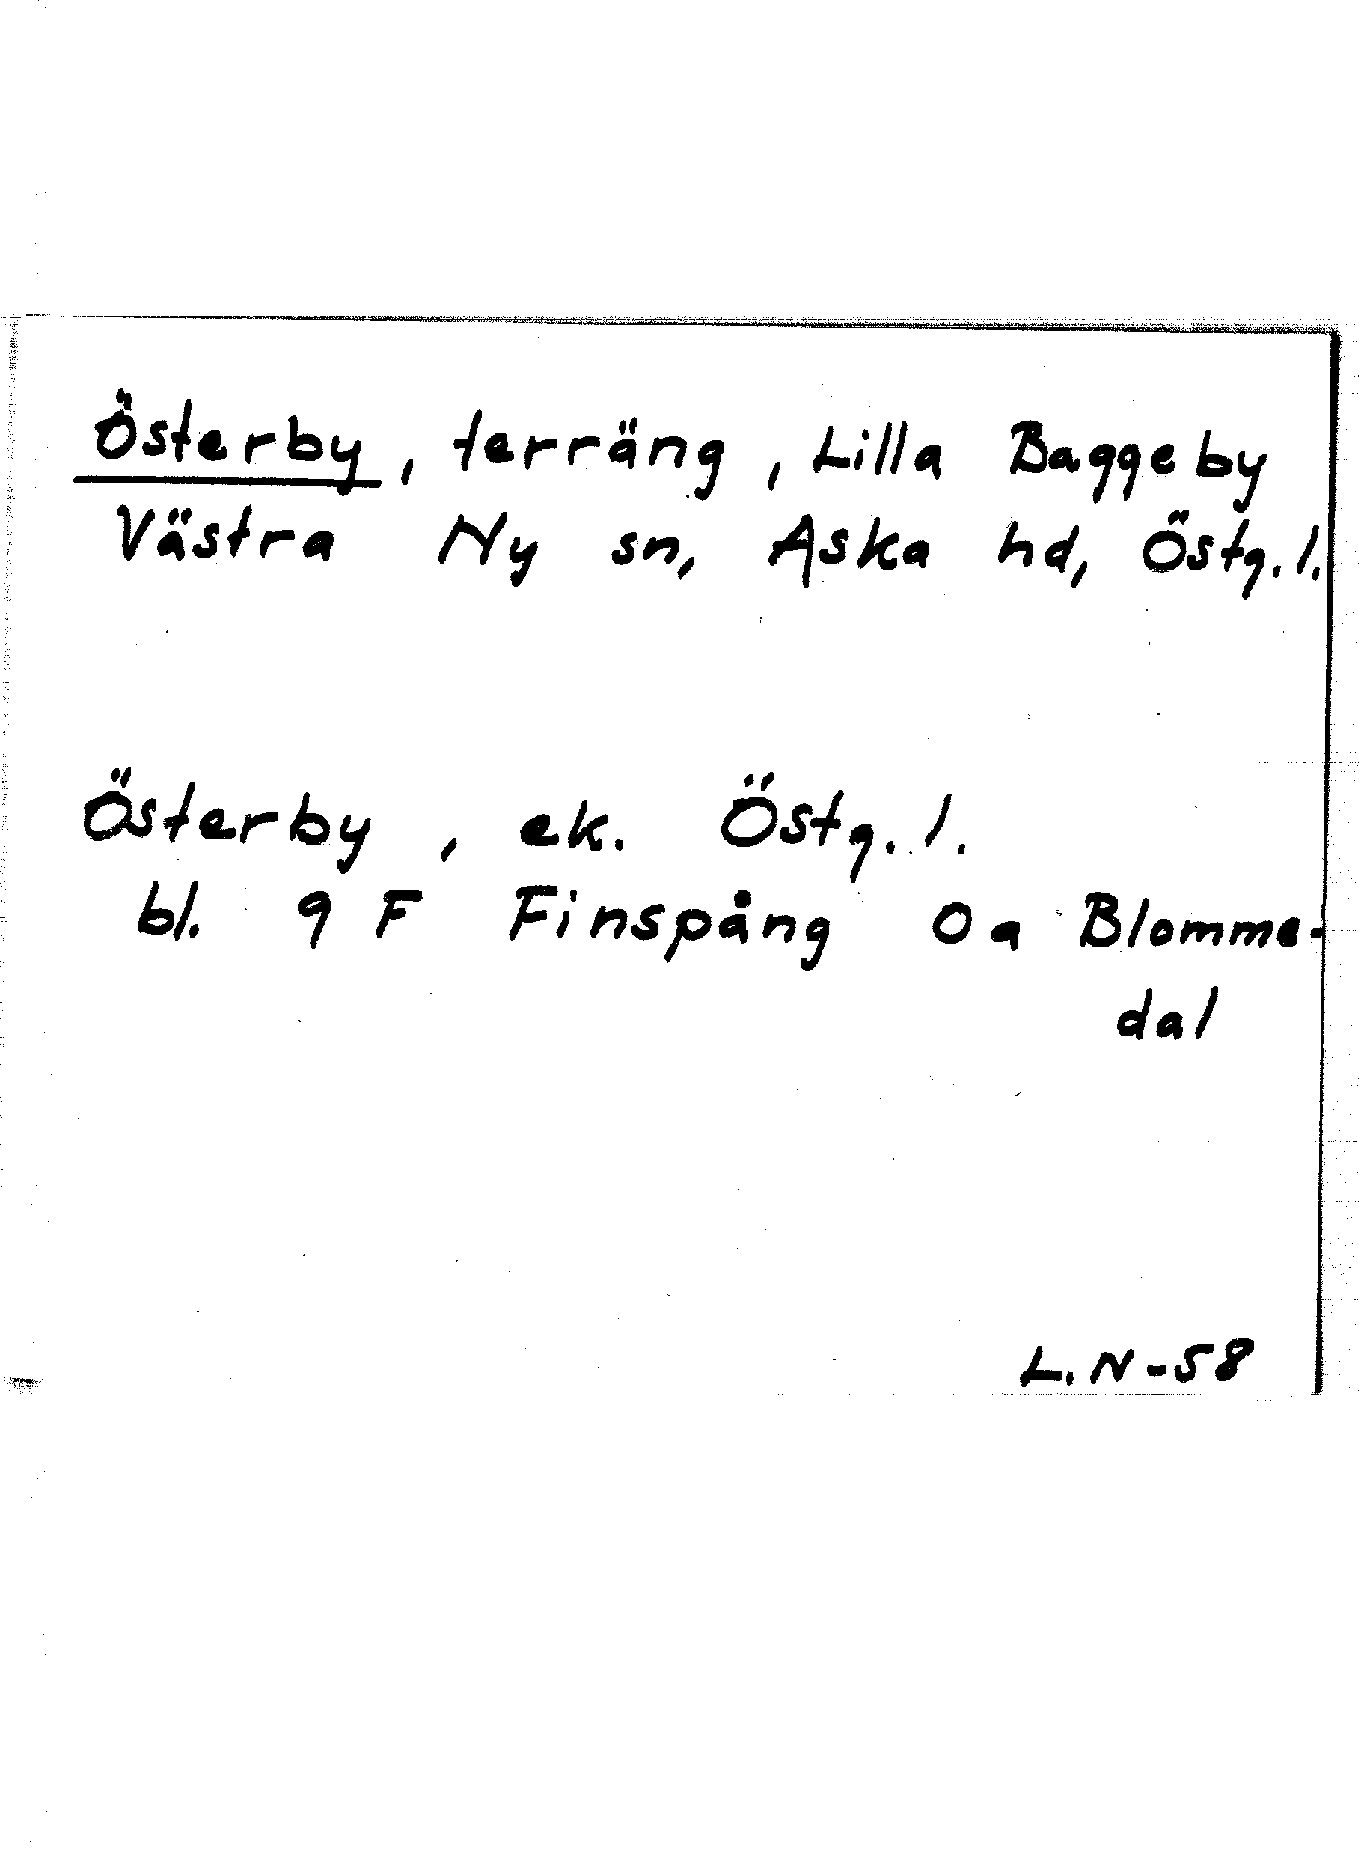 Österby, terräng, Lilla Baggeby
Västra Ny sn, Aska hd, Östg. l.
Österby, ek. Östg. l.
bl. 9 F Finspång 0 a Blomme-
dal
L.N-58